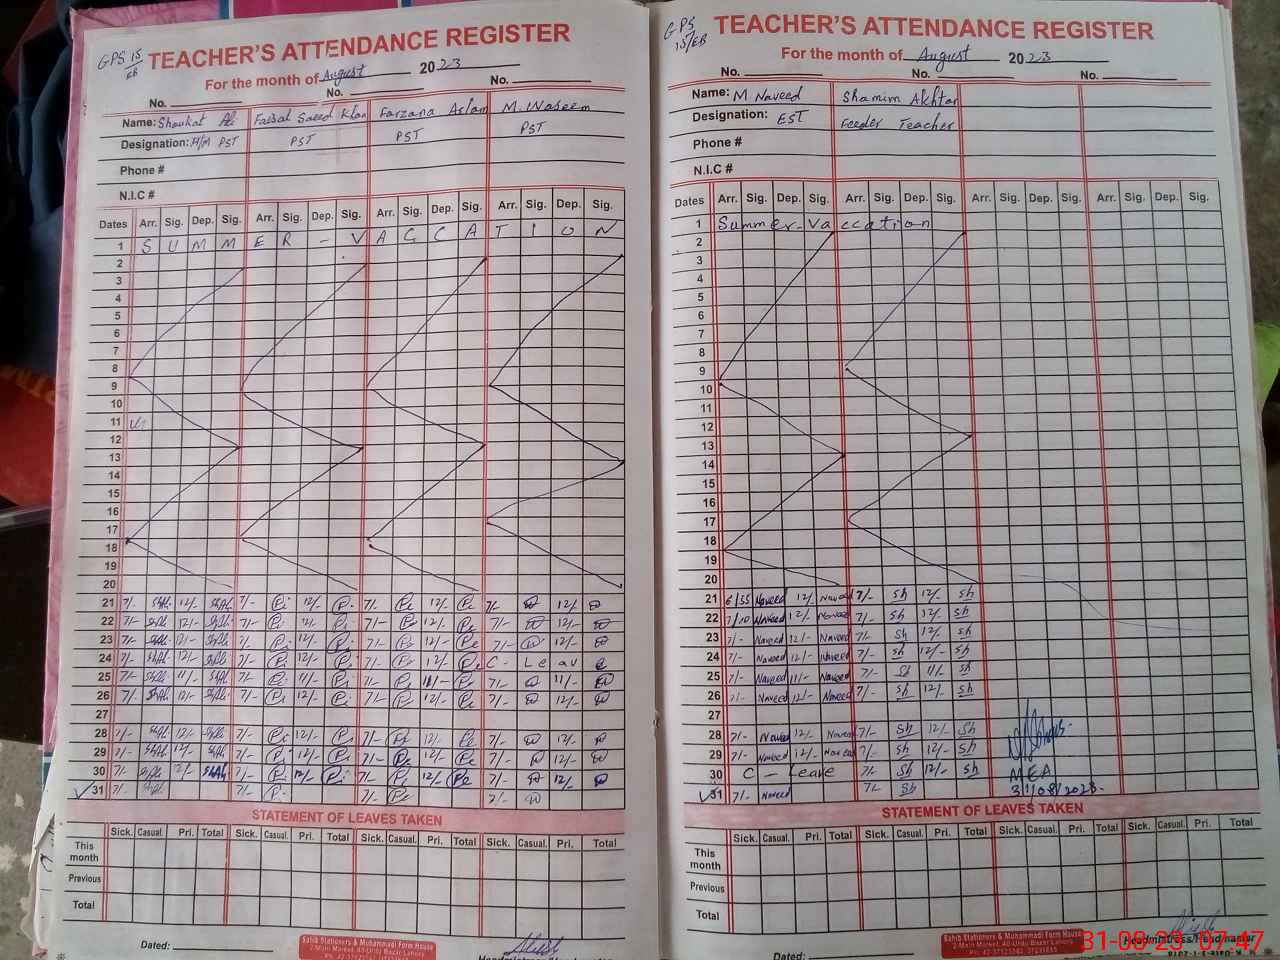 GPS 15/EB
TEACHER'S ATTENDANCE REGISTER
For the month of August 2023
No. No. No.
Name: Shaukat Ali Faisal Saeed Khan Farzana Aslam M. Waseem
Designation: H/M PST PST PST PST
Phone #
N.I.C #
Dates Arr. Sig. Dep. Sig. Arr. Sig. Dep. Sig. Arr. Sig. Dep. Sig. Arr. Sig. Dep. Sig.
1 S U M M E R - V A C C A T I O N
2
3
4
5
6
7
8
9
10
11
12
13
14
15
16
17
18
19
20
21 7/- 12/- 7/- 12/- 7/- 12/- 7/- 12/-
22 7/- 12/- 7/- 12/- 7/- 12/- 7/- 12/-
23 7/- 12/- 7/- 12/- 7/- 12/- 7/- 12/-
24 7/- 12/- 7/- 12/- 7/- 12/- C - Leave
25 7/- 11/- 7/- 11/- 7/- 11/- 7/- 11/-
26 7/- 12/- 7/- 12/- 7/- 12/- 7/- 12/-
27
28 7/- 12/- 7/- 12/- 7/- 12/- 7/- 12/-
29 7/- 12/- 7/- 12/- 7/- 12/- 7/- 12/-
30 7/- 12/- 7/- 12/- 7/- 12/- 7/- 12/-
31 7/- 7/- 7/- 7/-
STATEMENT OF LEAVES TAKEN
Sick. Casual. Pri. Total Sick. Casual. Pri. Total Sick. Casual. Pri. Total Sick. Casual. Pri. Total
This month
Previous
Total
Dated:
Sahib Stationers & Muhammadi Form House
2-Main Market, 40-Urdu Bazar Lahore
GPS 15/EB
TEACHER'S ATTENDANCE REGISTER
For the month of August 2023
No. No. No.
Name: M Naveed Shamim Akhtar
Designation: EST Feeder Teacher
Phone #
N.I.C #
Dates Arr. Sig. Dep. Sig. Arr. Sig. Dep. Sig. Arr. Sig. Dep. Sig. Arr. Sig. Dep. Sig.
1 Summer-Vaccation
2
3
4
5
6
7
8
9
10
11
12
13
14
15
16
17
18
19
20
21 6/55 Naveed 12/- Naveed 7/- Sh 12/- Sh
22 7/10 Naveed 12/- Naveed 7/- Sh 12/- Sh
23 7/- Naveed 12/- Naveed 7/- Sh 12/- Sh
24 7/- Naveed 12/- Naveed 7/- Sh 12/- Sh
25 7/- Naveed 11/- Naveed 7/- Sh 11/- Sh
26 7/- Naveed 12/- Naveed 7/- Sh 12/- Sh
27
28 7/- Naveed 12/- Naveed 7/- Sh 12/- Sh
29 7/- Naveed 12/- Naveed 7/- Sh 12/- Sh
30 C - Leave 7/- Sh 12/- Sh MEA
31 7/- Naveed 7/- Sh 31/08/2023.
STATEMENT OF LEAVES TAKEN
Sick. Casual. Pri. Total Sick. Casual. Pri. Total Sick. Casual. Pri. Total Sick. Casual. Pri. Total
This month
Previous
Total
Headmistress/Headmaster
Dated:
Sahib Stationers & Muhammadi Form House
2-Main Market, 40-Urdu Bazar Lahore
31-08-23 07:47